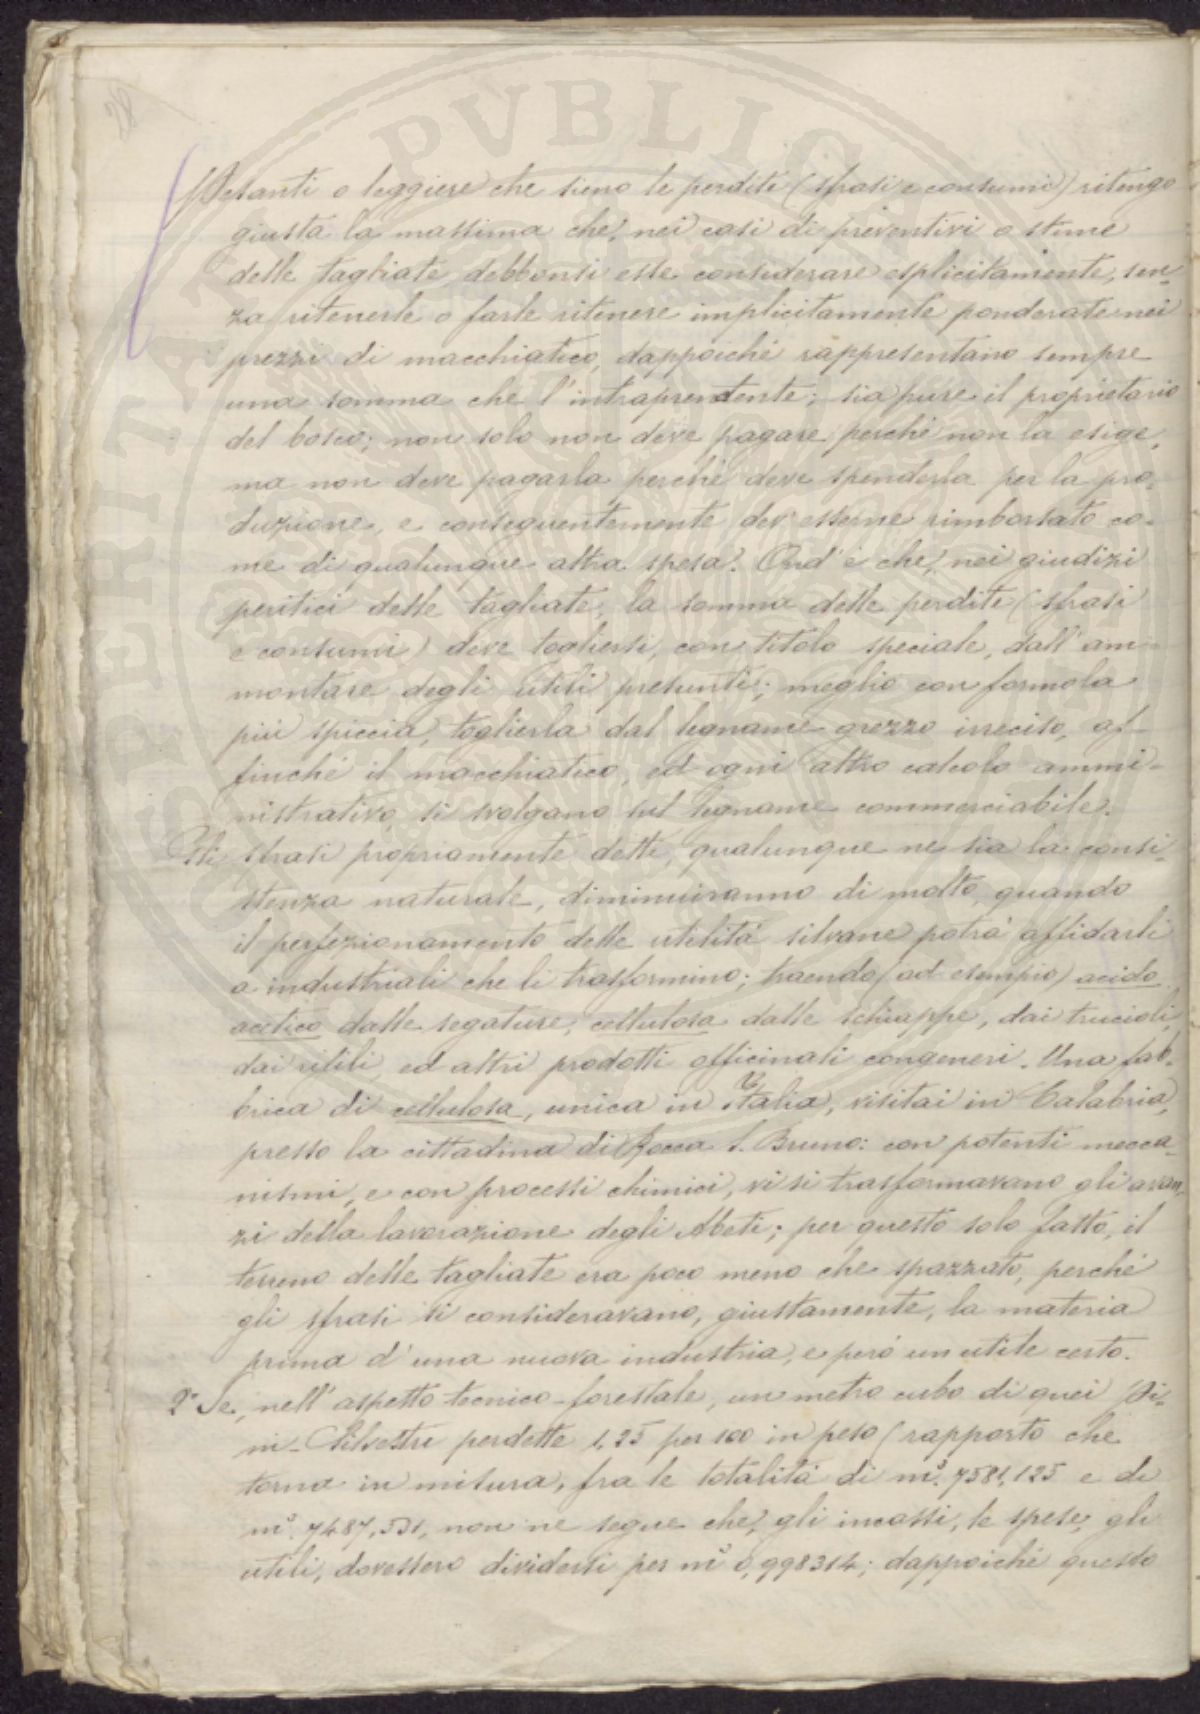 28
Pesanti o leggiere che sieno le perdite (sfrasi e consumi) ritengo
giusta la massima che, nei casi di preventivi o stime
delle tagliate, debbonsi esse considerare esplicitamente, sen-
za ritenerle o farle ritenere implicitamente ponderate nei
prezzi di macchiatico, dappoichè rappresentano sempre
una somma che l'intraprendente; sia pure il proprietario
del bosco; non solo non deve pagare perchè non la esige,
ma non deve pagarla perchè deve spenderla per la pro-
duzione, e conseguentemente dev'esserne rimborsato co-
me di qualunque altra spesa. Ond'è che, nei giudizi
peritici delle tagliate, la somma delle perdite (sfrasi
e consumi) deve togliersi, con titolo speciale, dall'am-
montare degli utili presunti; meglio con formola
più spiccia, toglierla dal legname grezzo irreciso, af-
finchè il macchiatico, ed ogni altro calcolo ammi-
nistrativo, si svolgano sul legname commerciabile.
Gli sfrasi propriamente detti, qualunque ne sia la consi-
stenza naturale, diminuiranno di molto, quando
il perfezionamento delle utilità silvane potrà affidarli
a industriali che li trasformino; traendo (ad esempio) acido
acetico dalle segature, cellulosa dalle schiappe, dai trucioli,
dai rifili, ed altri prodotti officinali congeneri. Una fab-
brica di cellulosa, unica in Italia, visitai in Calabria,
presso la cittadina di Rocca S. Bruno: con potenti mecca-
nismi, e con processi chimici, vi si trasformavano gli avan-
zi della lavorazione degli Abeti; per questo solo fatto, il
terreno delle tagliate era poco meno che spazzato, perchè
gli sfrasi si consideravano, giustamente, la materia
prima d'una nuova industria, e però un utile certo.
2° Se, nell'aspetto tecnico-forestale, un metro cubo di quei Pi-
ni-Silvestri perdette 1,25 per 100 in peso (rapporto che
torna in misura, fra le totalità di m³. 7581,125 e di
m³. 7487,531, non ne segue che, gli incassi, le spese, gli
utili, dovessero dividersi per m³ 0,998314; dappoichè questo